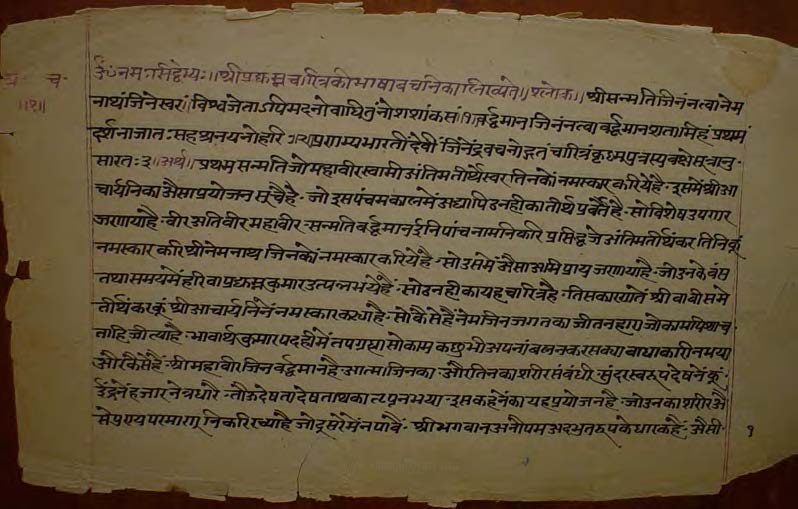 प्र॰ च॰
॥१॥
ॐनमःसिद्धेभ्यः॥ श्रीप्रद्युम्नचरित्रकीभाषावचनिकालिख्यते॥ श्लोक॥ श्रीसन्मतिजिनंनत्वानेम
नाथंजिनेस्वरं॥ विश्वजेताऽपिमदनोबाधितुंनोशशाकसां॥१॥वर्द्धमानंजिनंनत्वा वर्द्धमानशतामिहं प्रथमं
दर्शनाजातःसहश्रनयनोहरि॥२॥प्रणम्यभारतींदेवीं जिनेंद्रवचनोद्गतं चारित्रंकृष्मपुत्रस्यवक्षेसूत्रानु
सारतः३॥अर्थ॥प्रथमसन्मतिजोमहावीरस्वामीअंतिमतीर्थेस्वरतिनकोंनमस्कारकरियेहै॰इसमेंश्रीआ
चार्यनिकाअैसाप्रयोजनसूचैहै॰ जोइसपंचमकालमेंअद्यापिउनहीकातीर्थप्रवर्तैहै॰सोविशेषउपगार
जरणायाहै॰वीरअतिवीरमहावीर॰सन्मतिवर्द्धमानइनिपांचनामनिकरिप्रसिद्धजेअंतिमतीर्थंकरतिनिकूं
नमस्कारकरिश्रीनेमनाथजिनकोंनमस्कारकरियेहै॰सोउसमेंअैसाअभिप्रायजणायाहै॰जोउनकेवंस
तथासमयमेंहरिवाप्रद्युम्नकुमारउत्पन्नभयेहैं॰सोउनहीकायहचारित्रहै॰तिसकारणतेंश्रीबावीसमे
तीर्थंकरकूंश्रीआचार्यनिनेंनमस्कारकर्याहै॰सोकैसेहैंनेमजिनजगतकाजीतनहाराजोकाम
ताहिजीत्याहै॰भावार्थकुमारपदहीमेंतपग्रह्यासोकामकछुभीअपनांबलनकरसक्याबाधाकारीनभया
औरकैसेहैं॰श्रीमहावीरजिनवर्द्धमानहैआत्माजिनका॰औरतिनकाशरीरसंबंधीसुंदरस्वरूपदेषनेंकूं
इंद्रनेंहजारनेत्रधारै॰तौऊदेषतादेषताथकातृप्तनभया॰इसकहनेंकायहप्रयोजनहै॰जोउनकाशरीरअै
सेपुण्यपरमाणूनिकरिरच्याहैजोदूसरेमेंनपावैं॰श्रीभगवानअनौपमअदभुतरूपकेधारकहै॰अैसी
१